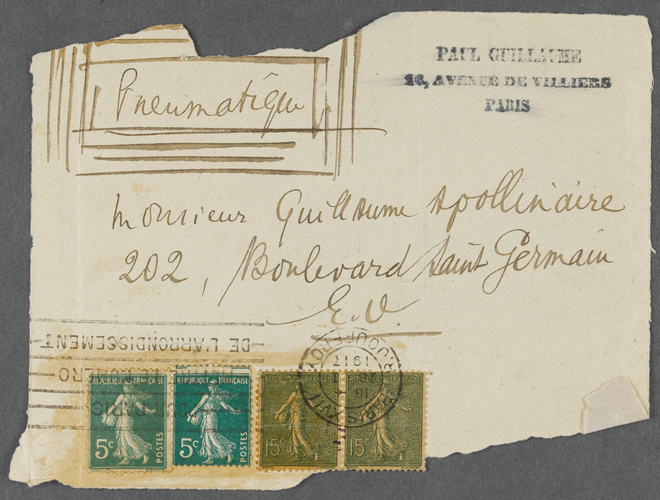 PAUL GUILLAUME
16, AVENUE DE VILLIERS
PARIS
Pneumatique
Monsieur Guillaume Apollinaire
202, Boulevard Saint Germain
E.V.
DE L'ARRONDISSEMENT
NUMERO
PARIS XVII
1917
16
REPUBLIQUE FRANÇAISE
5c
POSTES
REPUBLIQUE FRANÇAISE
5c
POSTES
15c
15c